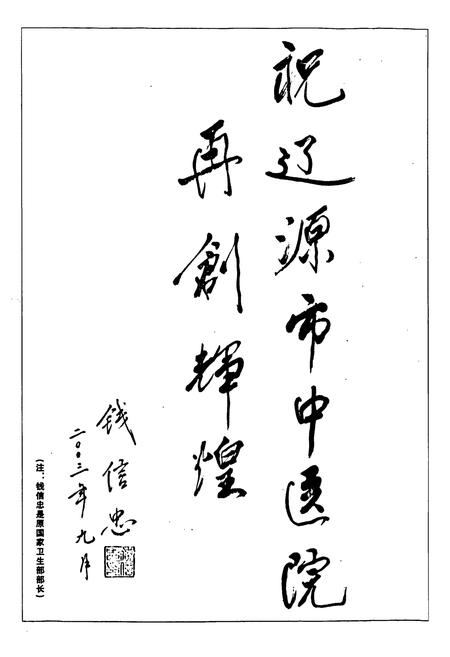 祝辽源市中医院
再創輝煌
钱信忠
二〇〇三年九月
(注：钱信忠是原国家卫生部部长)